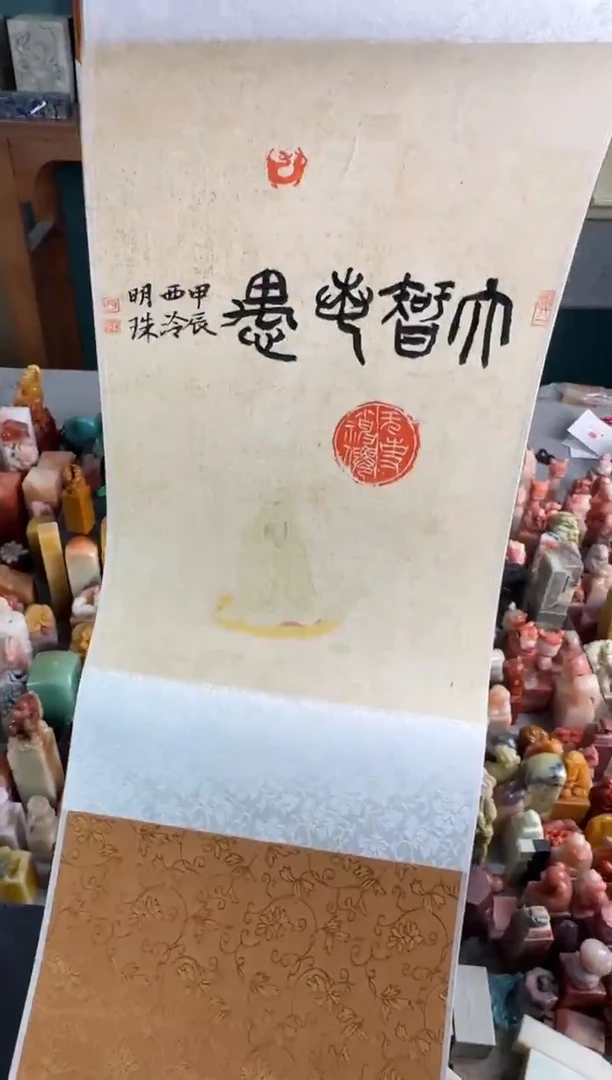 大智若愚
甲辰
西泠
明珠